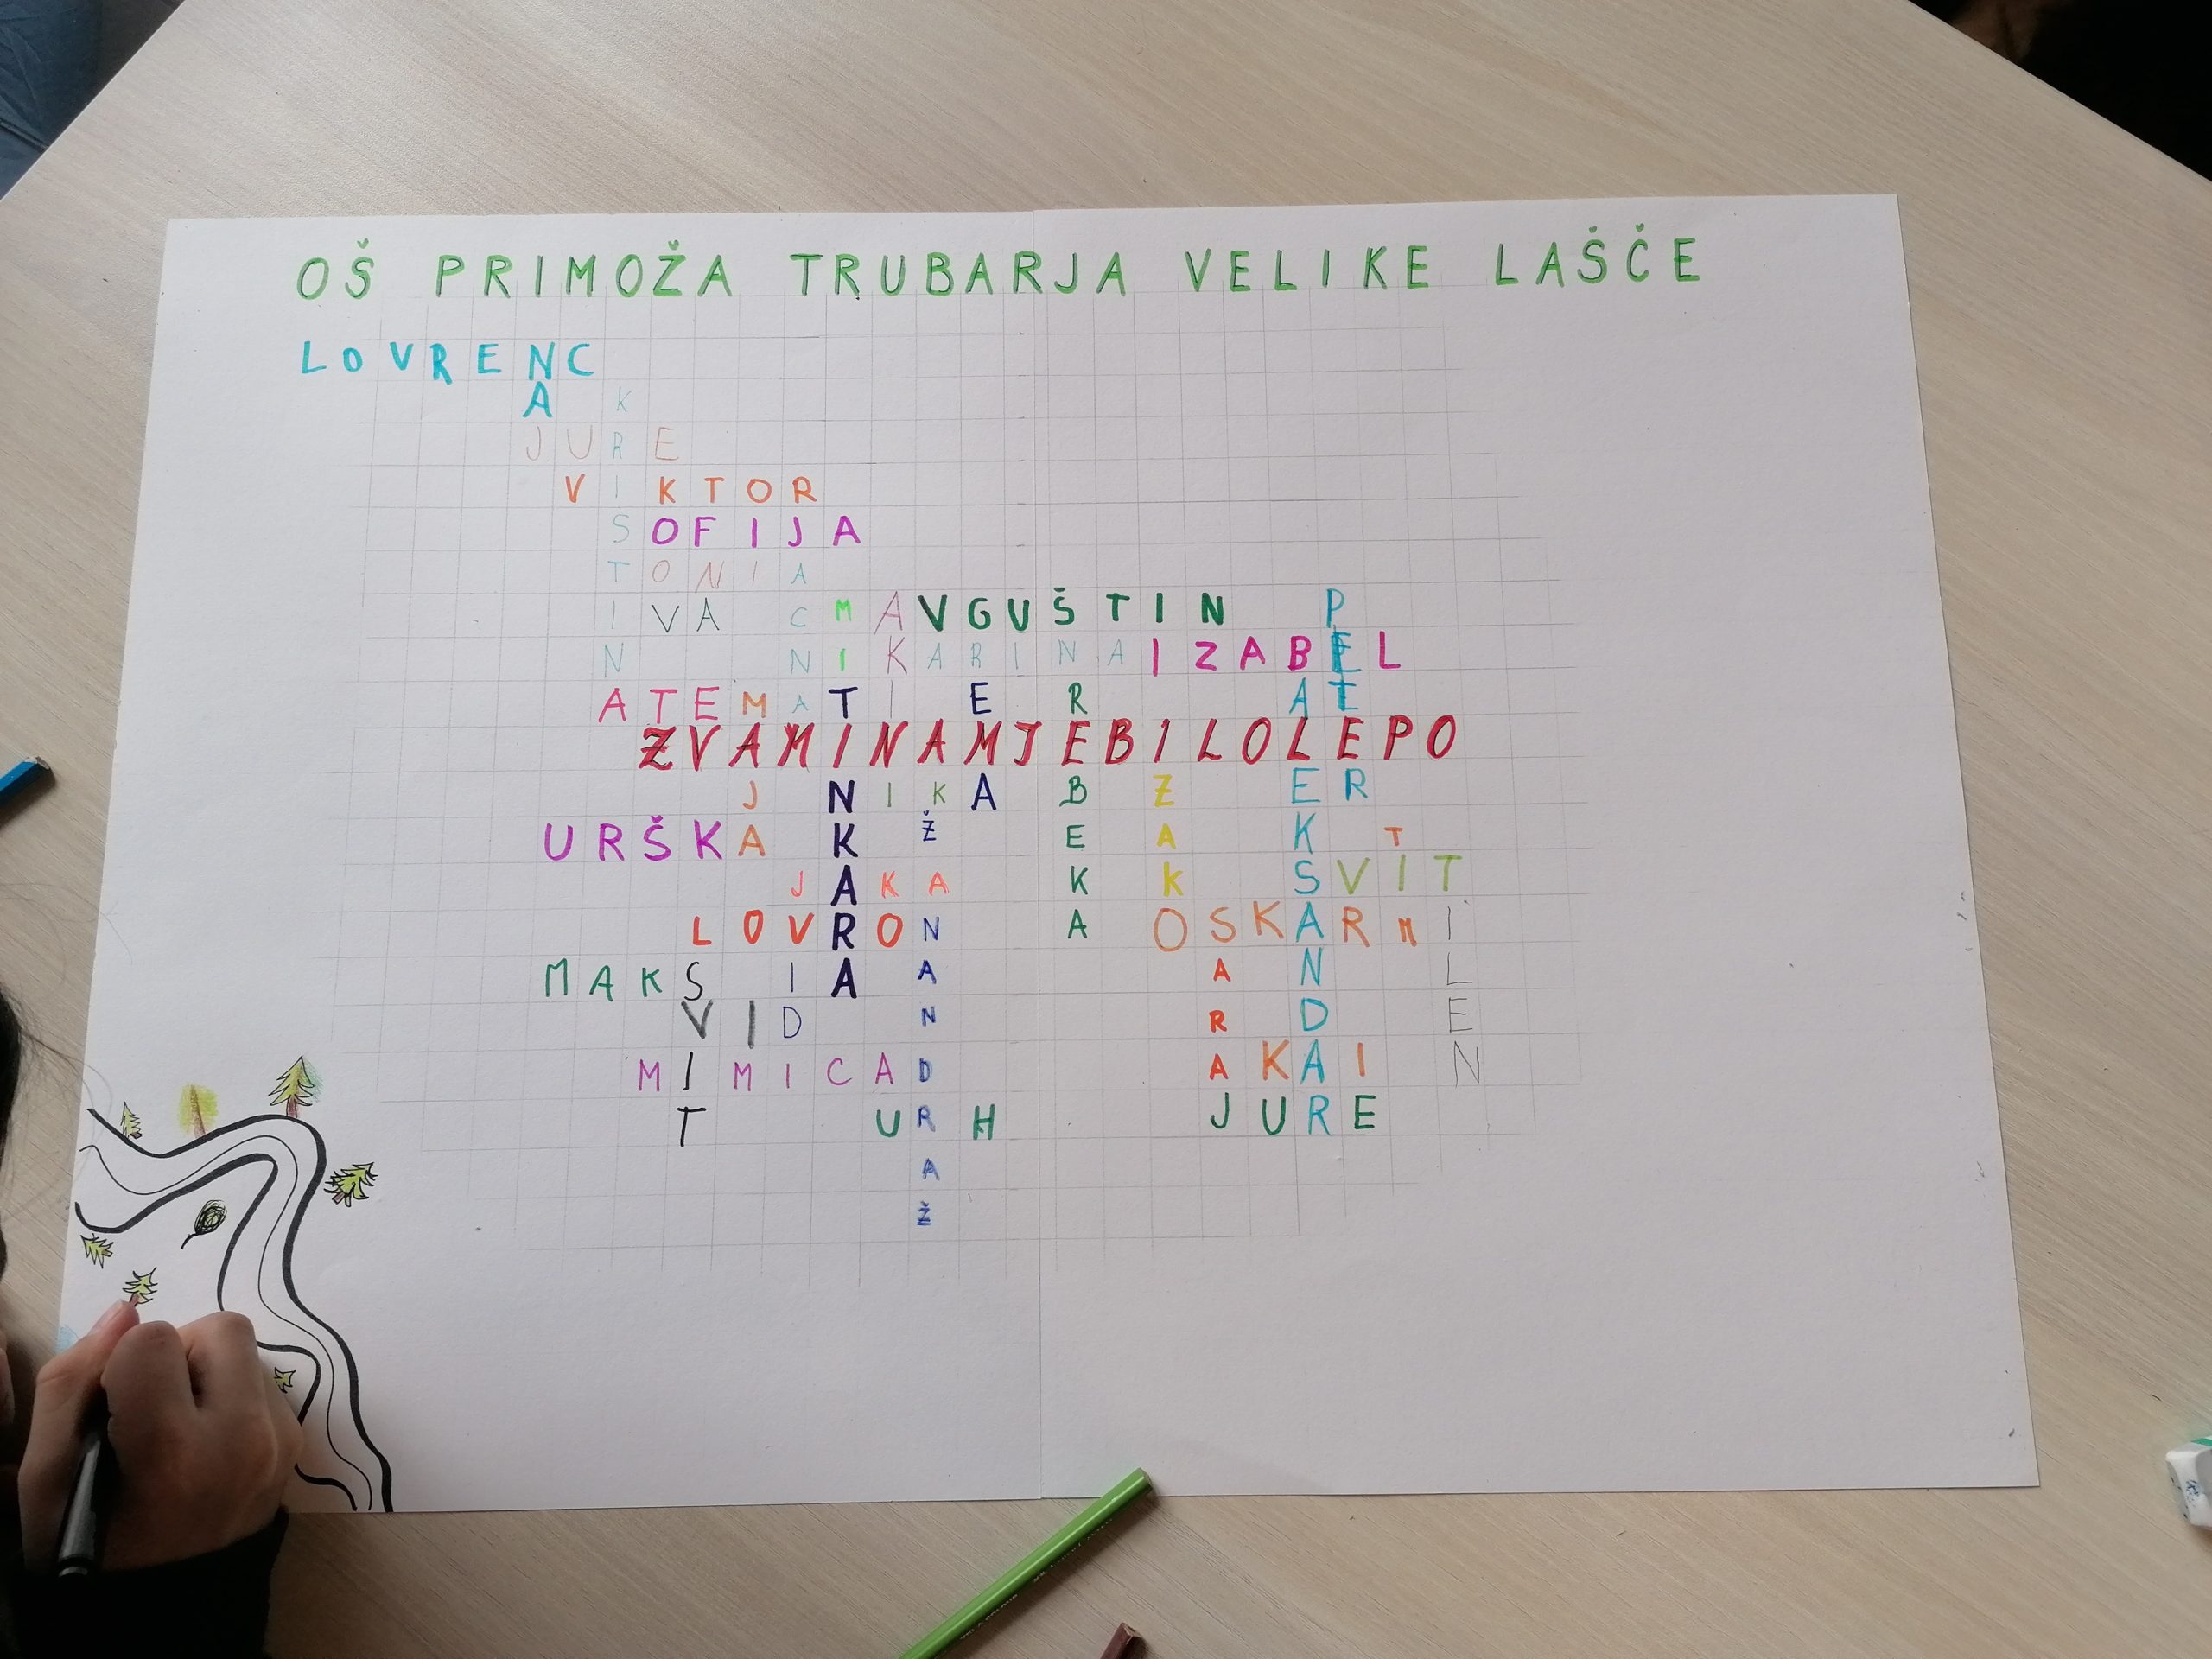 OŠ PRIMOŽA TRUBARJA VELIKE LAŠČE
LOVRENC
A K
JURE
VIKTOR
SOFIJA
TONI A
IVA C M AVGUŠTIN P
N N I KARINA IZABEL
ATEMATI E R A T
ZVAMINAMJEBILOLEPO
J N I K A B Z E R
URŠKA K Ž E A K T
JAKA K K SVIT
LOVRO N A OSKAR M I
MAKS I A A A N L
VID N R D E
MIMICA D A KAI N
T URH JURE
A
Ž